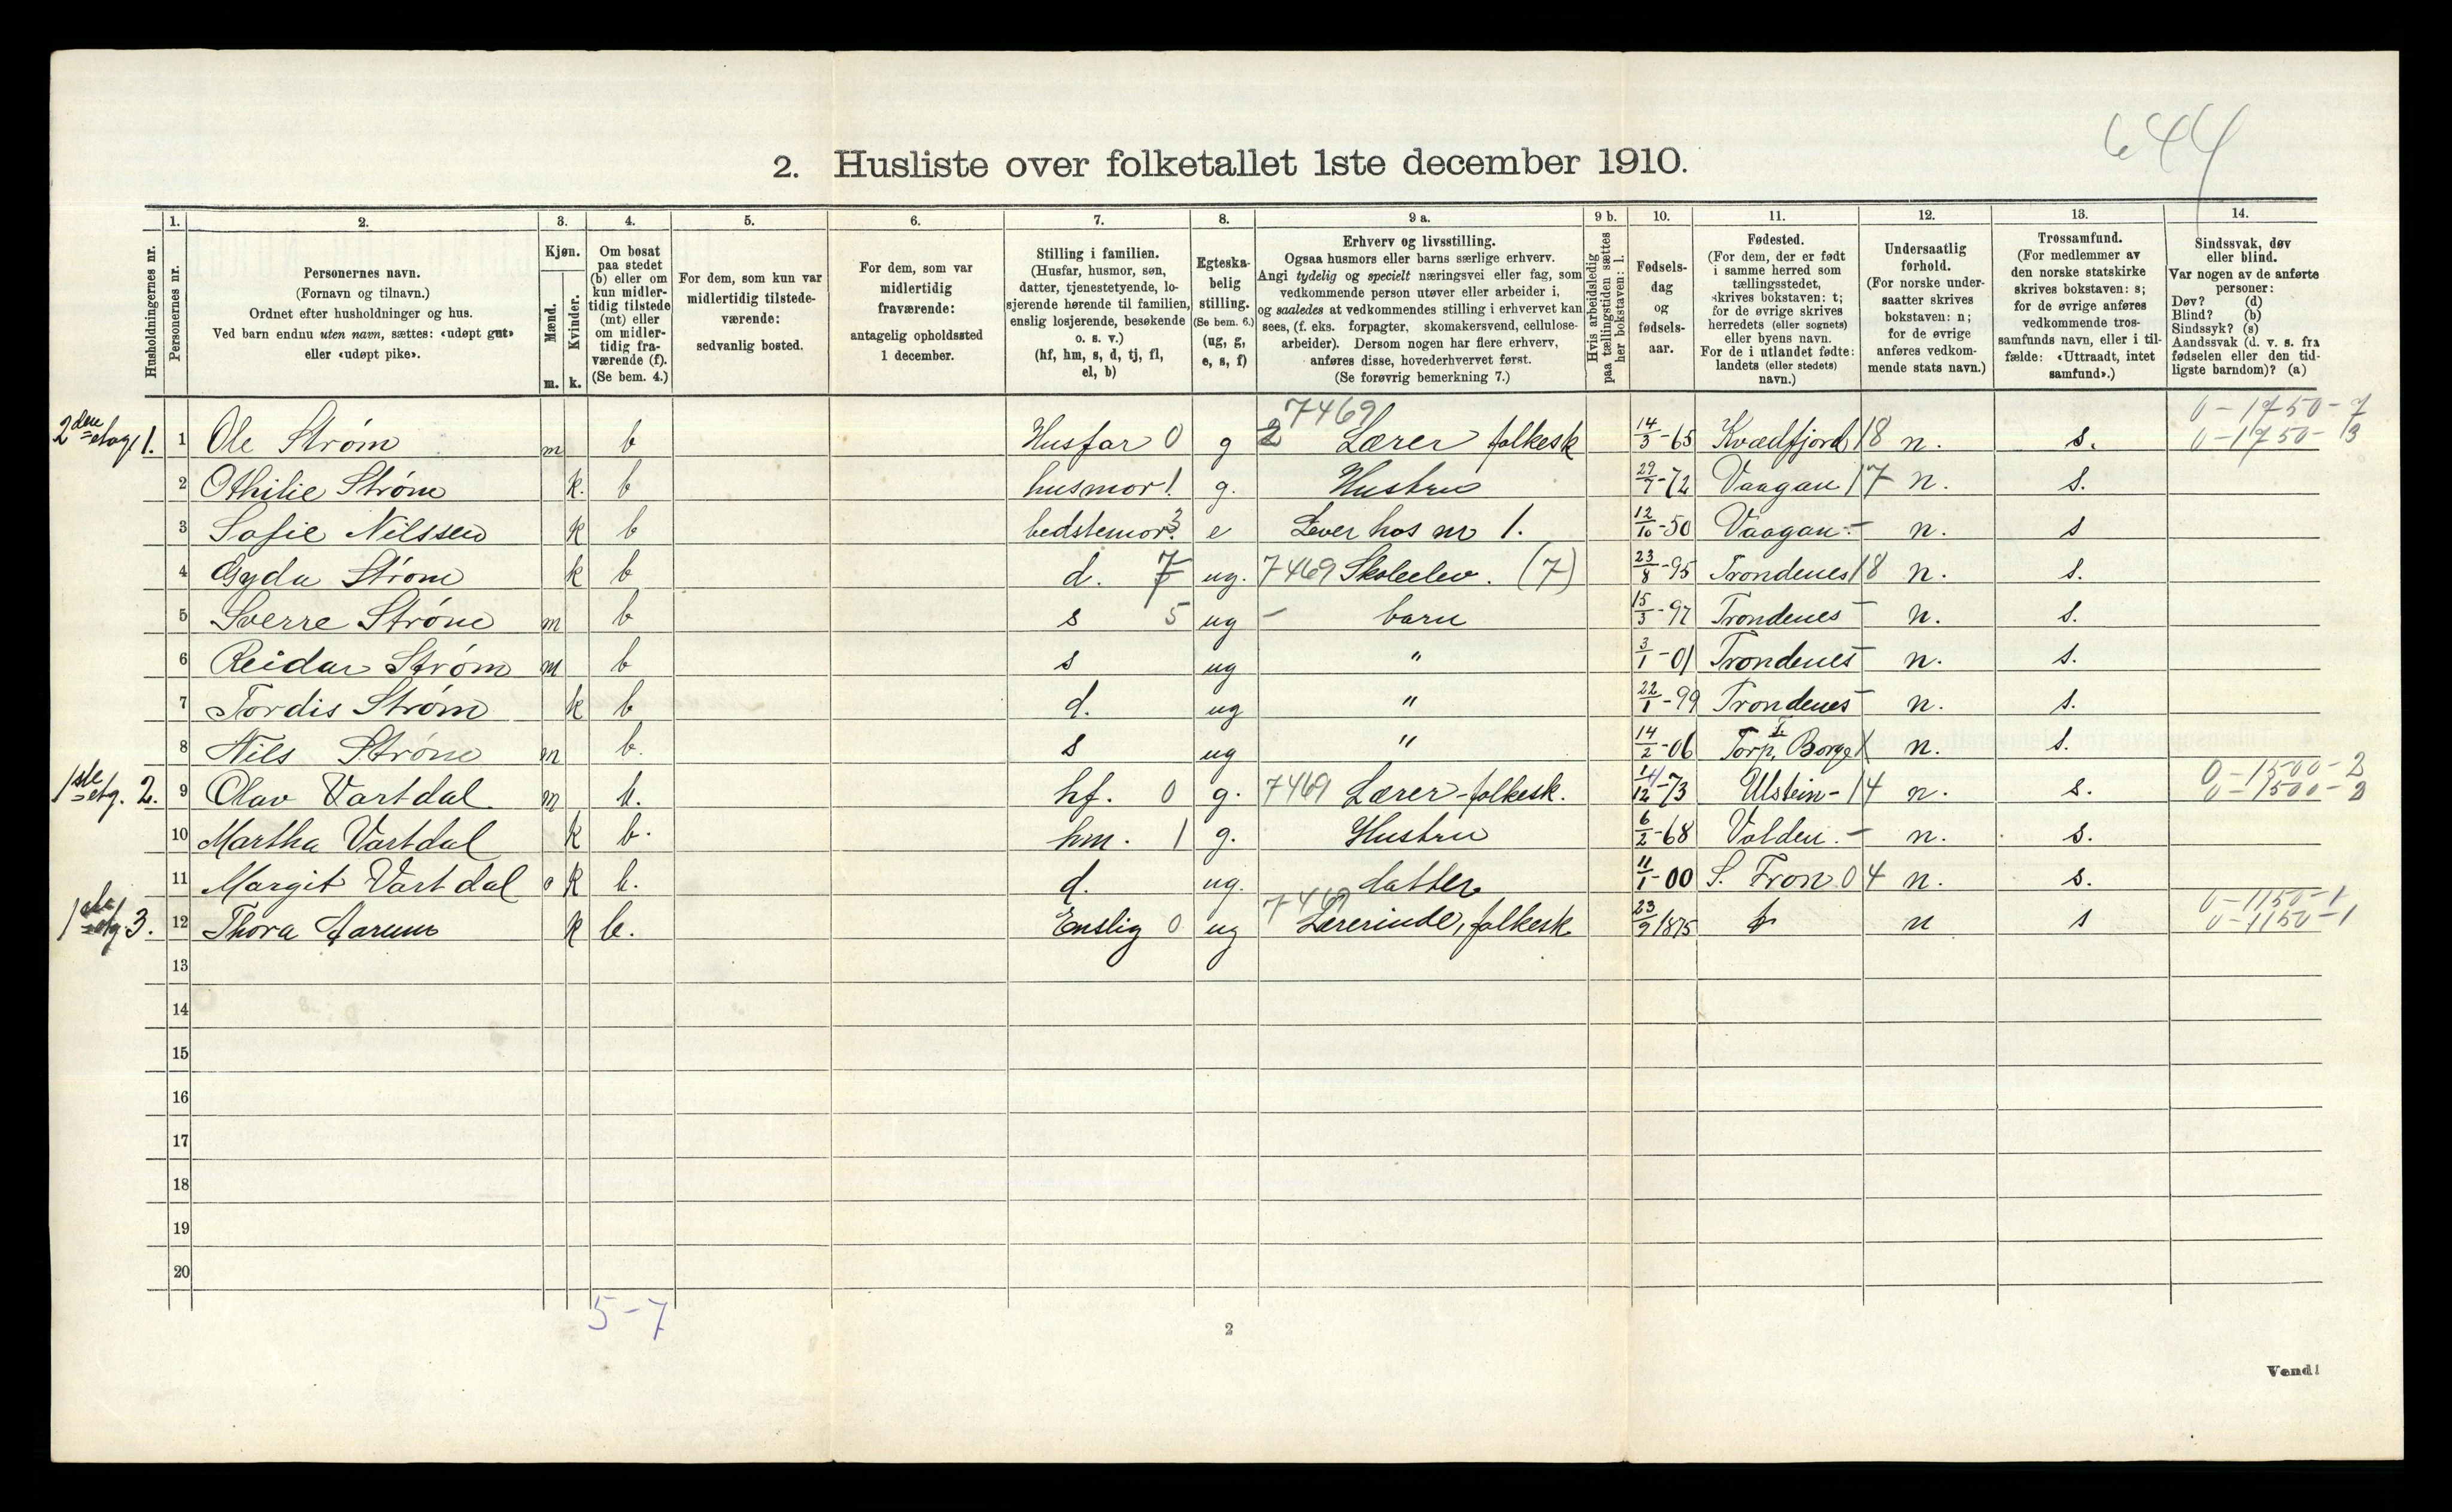 644
2. Husliste over folketallet 1ste december 1910.
Husholdningernes nr.
1. Personernes nr.
2. Personernes navn. (Fornavn og tilnavn.) Ordnet efter husholdninger og hus. Ved barn endnu uten navn, sættes: «udøpt gut» eller «udøpt pike».
3. Kjøn. Mænd. m. Kvinder. k.
4. Om bosat paa stedet (b) eller om kun midlertidig tilstede (mt) eller om midlertidig fraværende (f). (Se bem. 4.)
5. For dem, som kun var midlertidig tilstedeværende: sedvanlig bosted.
6. For dem, som var midlertidig fraværende: antagelig opholdssted 1 december.
7. Stilling i familien. (Husfar, husmor, søn, datter, tjenestetyende, losjerende hørende til familien, enslig losjerende, besøkende o. s. v.) (hf, hm, s, d, tj, fl, el, b)
8. Egteskabelig stilling. (Se bem. 6.) (ug, g, e, s, f)
9 a. Erhverv og livsstilling. Ogsaa husmors eller barns særlige erhverv. Angi tydelig og specielt næringsvei eller fag, som vedkommende person utøver eller arbeider i, og saaledes at vedkommendes stilling i erhvervet kan sees, (f. eks. forpagter, skomakersvend, cellulosearbeider). Dersom nogen har flere erhverv, anføres disse, hovederhvervet først. (Se forøvrig bemerkning 7.)
9 b. Hvis arbeidsledig paa tællingstiden sættes her bokstaven: l.
10. Fødselsdag og fødselsaar.
11. Fødested. (For dem, der er født i samme herred som tællingsstedet, skrives bokstaven: t; for de øvrige skrives herredets (eller sognets) eller byens navn. For de i utlandet fødte: landets (eller stedets) navn.)
12. Undersaatlig forhold. (For norske undersaatter skrives bokstaven: n; for de øvrige anføres vedkommende stats navn.)
13. Trossamfund. (For medlemmer av den norske statskirke skrives bokstaven: s; for de øvrige anføres vedkommende trossamfunds navn, eller i tilfælde: «Uttraadt, intet samfund».)
14. Sindssvak, døv eller blind. Var nogen av de anførte personer: Døv? (d) Blind? (b) Sindssyk? (s) Aandssvak (d. v. s. fra fødselen eller den tidligste barndom)? (a)
0-1750-7
2den etag. 1. 1 Ole Strøm m b Husfar 0 g 2 7469 Lærer folkesk 14/3-65 Kvædfjord 18 n. s. 0-1750-3
2 Othilie Strøm k. b husmor 1. g. Hustru 29/7-72 Vaagan 17 n. s.
3 Sofie Nilssen k b bedstemor 3 e Lever hos nr 1. 12/10-50 Vaagan - n. s
4 Gyda Strøm k b d. 7 ug. 7469 Skoleelev. (7) 23/8-95 Trondenes 18 n. s.
5 Sverre Strøm m b s 5 ug - barn 15/3-97 Trondenes - n. s.
6 Reidar Strøm m b s ug " 3/1-01 Trondenes - n. s.
7 Tordis Strøm k b d. ug " 22/1-99 Trondenes - n. s.
8 Nils Strøm m b. s ug " 14/2-06 Torp, Borge n. s.
0-1500-2
1ste etg. 2. 9 Olav Vartdal m b. hf. 0 g. 7469 Lærer - folkesk. 12-73 Ulstein - 14 n. s. 0-1500-2
10 Martha Vartdal k b. hm. 1 g. Hustru 6/2-68 Volden. - n. s.
11 Margit Vartdal k b. d. ug. datter 11/1-00 S. Fron 04 n. s.
0-1150-1
1ste etg 3. 12 Thora Aarum k b. Enslig 0 ug 7469 Lærerinde, folkesk 23/9 1875 t n s 0-1150-1
13
14
15
16
17
18
19
20
5-7
2
Vend!